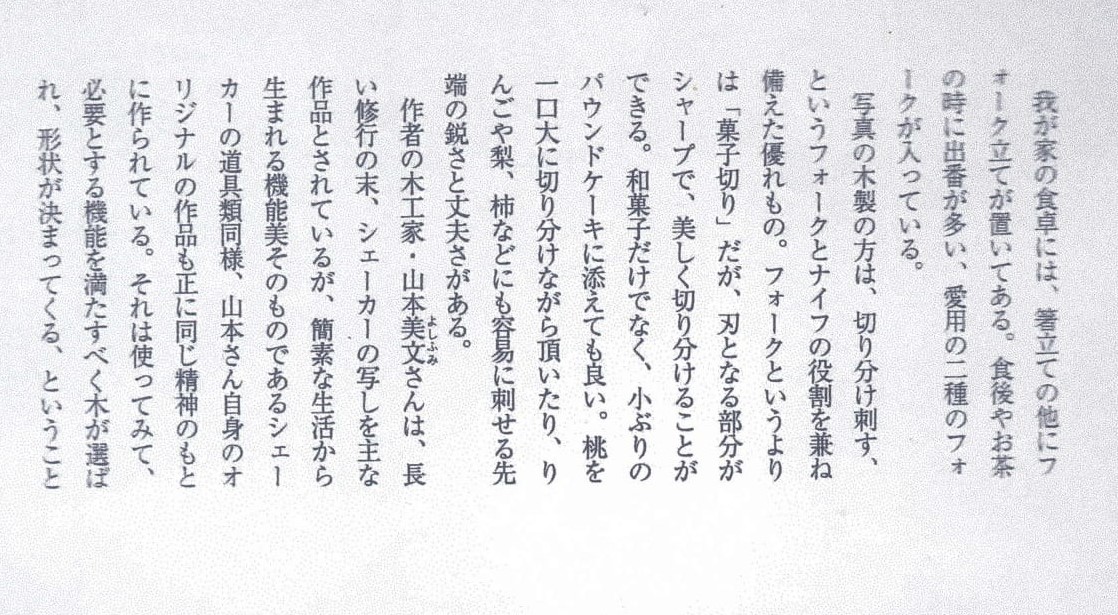 我が家の食卓には、箸立ての他にフ
ォーク立てが置いてある。食後やお茶
の時に出番が多い、愛用の二種のフォ
ークが入っている。
写真の木製の方は、切り分け刺す、
というフォークとナイフの役割を兼ね
備えた優れもの。フォークというより
は「菓子切り」だが、刃となる部分が
シャープで、美しく切り分けることが
できる。和菓子だけでなく、小ぶりの
パウンドケーキに添えても良い。桃を
一口大に切り分けながら頂いたり、り
んごや梨、柿などにも容易に刺せる先
端の鋭さと丈夫さがある。
作者の木工家・山本美文さんは、長
よしふみ
い修行の末、シェーカーの写しを主な
作品とされているが、簡素な生活から
生まれる機能美そのものであるシェー
カーの道具類同様、山本さん自身のオ
リジナルの作品も正に同じ精神のもと
に作られている。それは使ってみて、
必要とする機能を満たすべく木が選ば
れ、形状が決まってくる、ということ